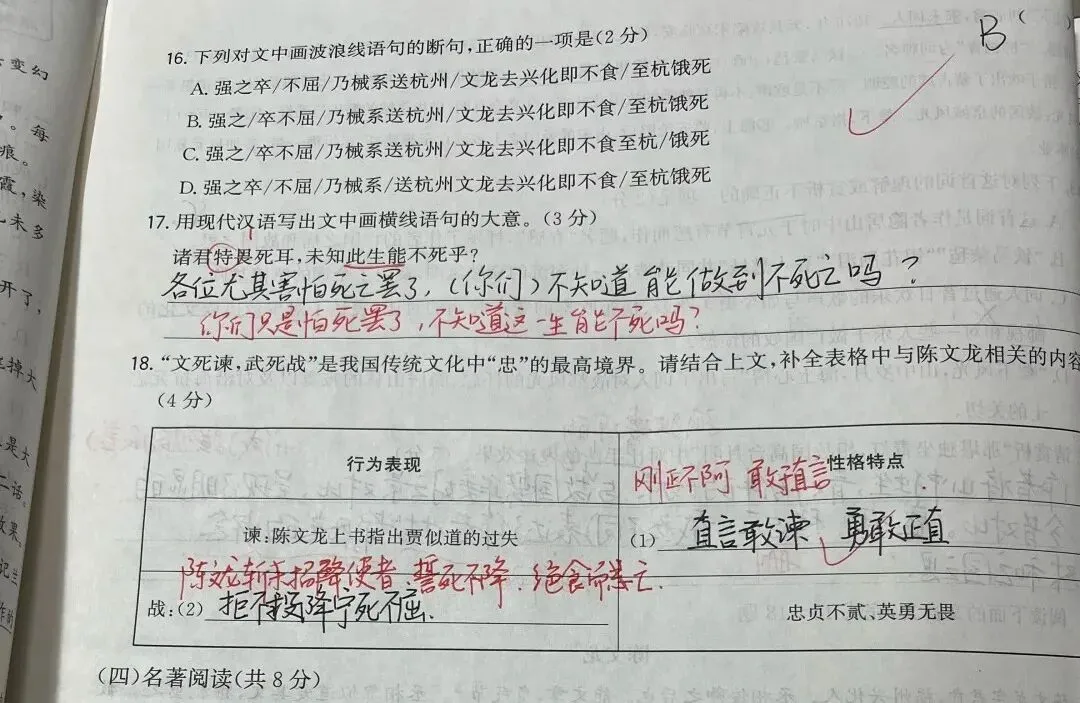 变幻
每
痕。
霞,染
未多
开了,
掉大
是大
话。
效果
B (
16. 下列对文中画波浪线语句的断句,正确的一项是(2 分)
A. 强之卒/不屈/乃械系送杭州/文龙去兴化即不食/至杭饿死
B. 强之/卒不屈/乃械系送杭州/文龙去兴化即不食/至杭饿死
C. 强之/卒不屈/乃械系送杭州/文龙去兴化即不食至杭/饿死
D. 强之卒/不屈/乃械系/送杭州文龙去兴化即不食/至杭饿死
17. 用现代汉语写出文中画横线语句的大意。(3 分)
诸君特畏死耳,未知此生能不死乎?
各位尤其害怕死亡罢了,(你们)不知道能做到不死亡吗?
你们只是怕死罢了,不知道这一生能不死吗?
18. “文死谏,武死战”是我国传统文化中“忠”的最高境界。请结合上文,补全表格中与陈文龙相关的内容
(4 分)
行为表现
刚正不阿 敢直言 性格特点
谏:陈文龙上书指出贾似道的过失
(1) 直言敢谏 勇敢正直
陈文龙斩杀招降使者、誓死不降、绝食而亡.
战:(2) 拒不投降宁死不屈.
忠贞不贰、英勇无畏
(四)名著阅读(共 8 分)